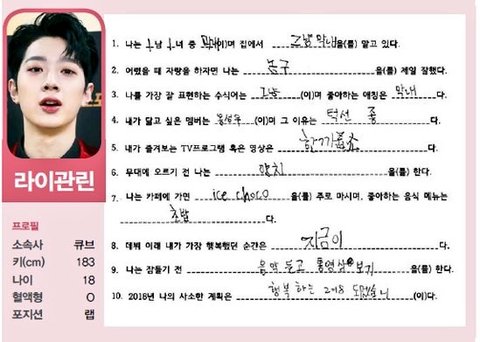 라이관린
프로필
소속사 큐브
키(cm) 183
나이 18
혈액형 O
포지션 랩
1. 나는 1남 1녀 중 이며 집에서 그냥 막내 을(를) 맡고 있다.
2. 어렸을 때 자랑을 하자면 나는 농구 을(를) 제일 잘했다.
3. 나를 가장 잘 표현하는 수식어는 (이)며 좋아하는 애칭은 막내 다.
4. 내가 닮고 싶은 멤버는 옹성우 (이)며 그 이유는 턱선 좋 다.
5. 내가 즐겨보는 TV프로그램 혹은 영상은 한끼줍쇼 다.
6. 무대에 오르기 전 나는 양치 을(를) 한다.
7. 나는 카페에 가면 ice choco 을(를) 주로 마시며, 좋아하는 음식 메뉴는
초밥 다.
8. 데뷔 이래 내가 가장 행복했던 순간은 지금이 다.
9. 나는 잠들기 전 음악 듣고 동영상 보기 을(를) 한다.
10. 2018년 나의 사소한 계획은 행복하는 2018 (이)다.